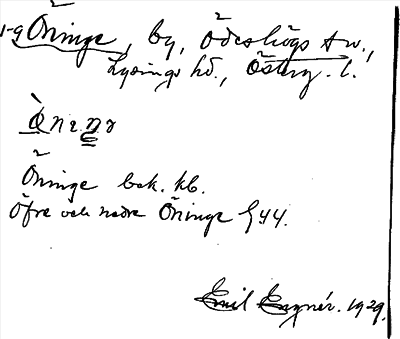 Öninge, by, Ödeshögs sn.,
Lysings hd., Österg. l.
Öninge bok. kb.
Öfre och nedre Öninge §44.
Emil Engnér. 1929.